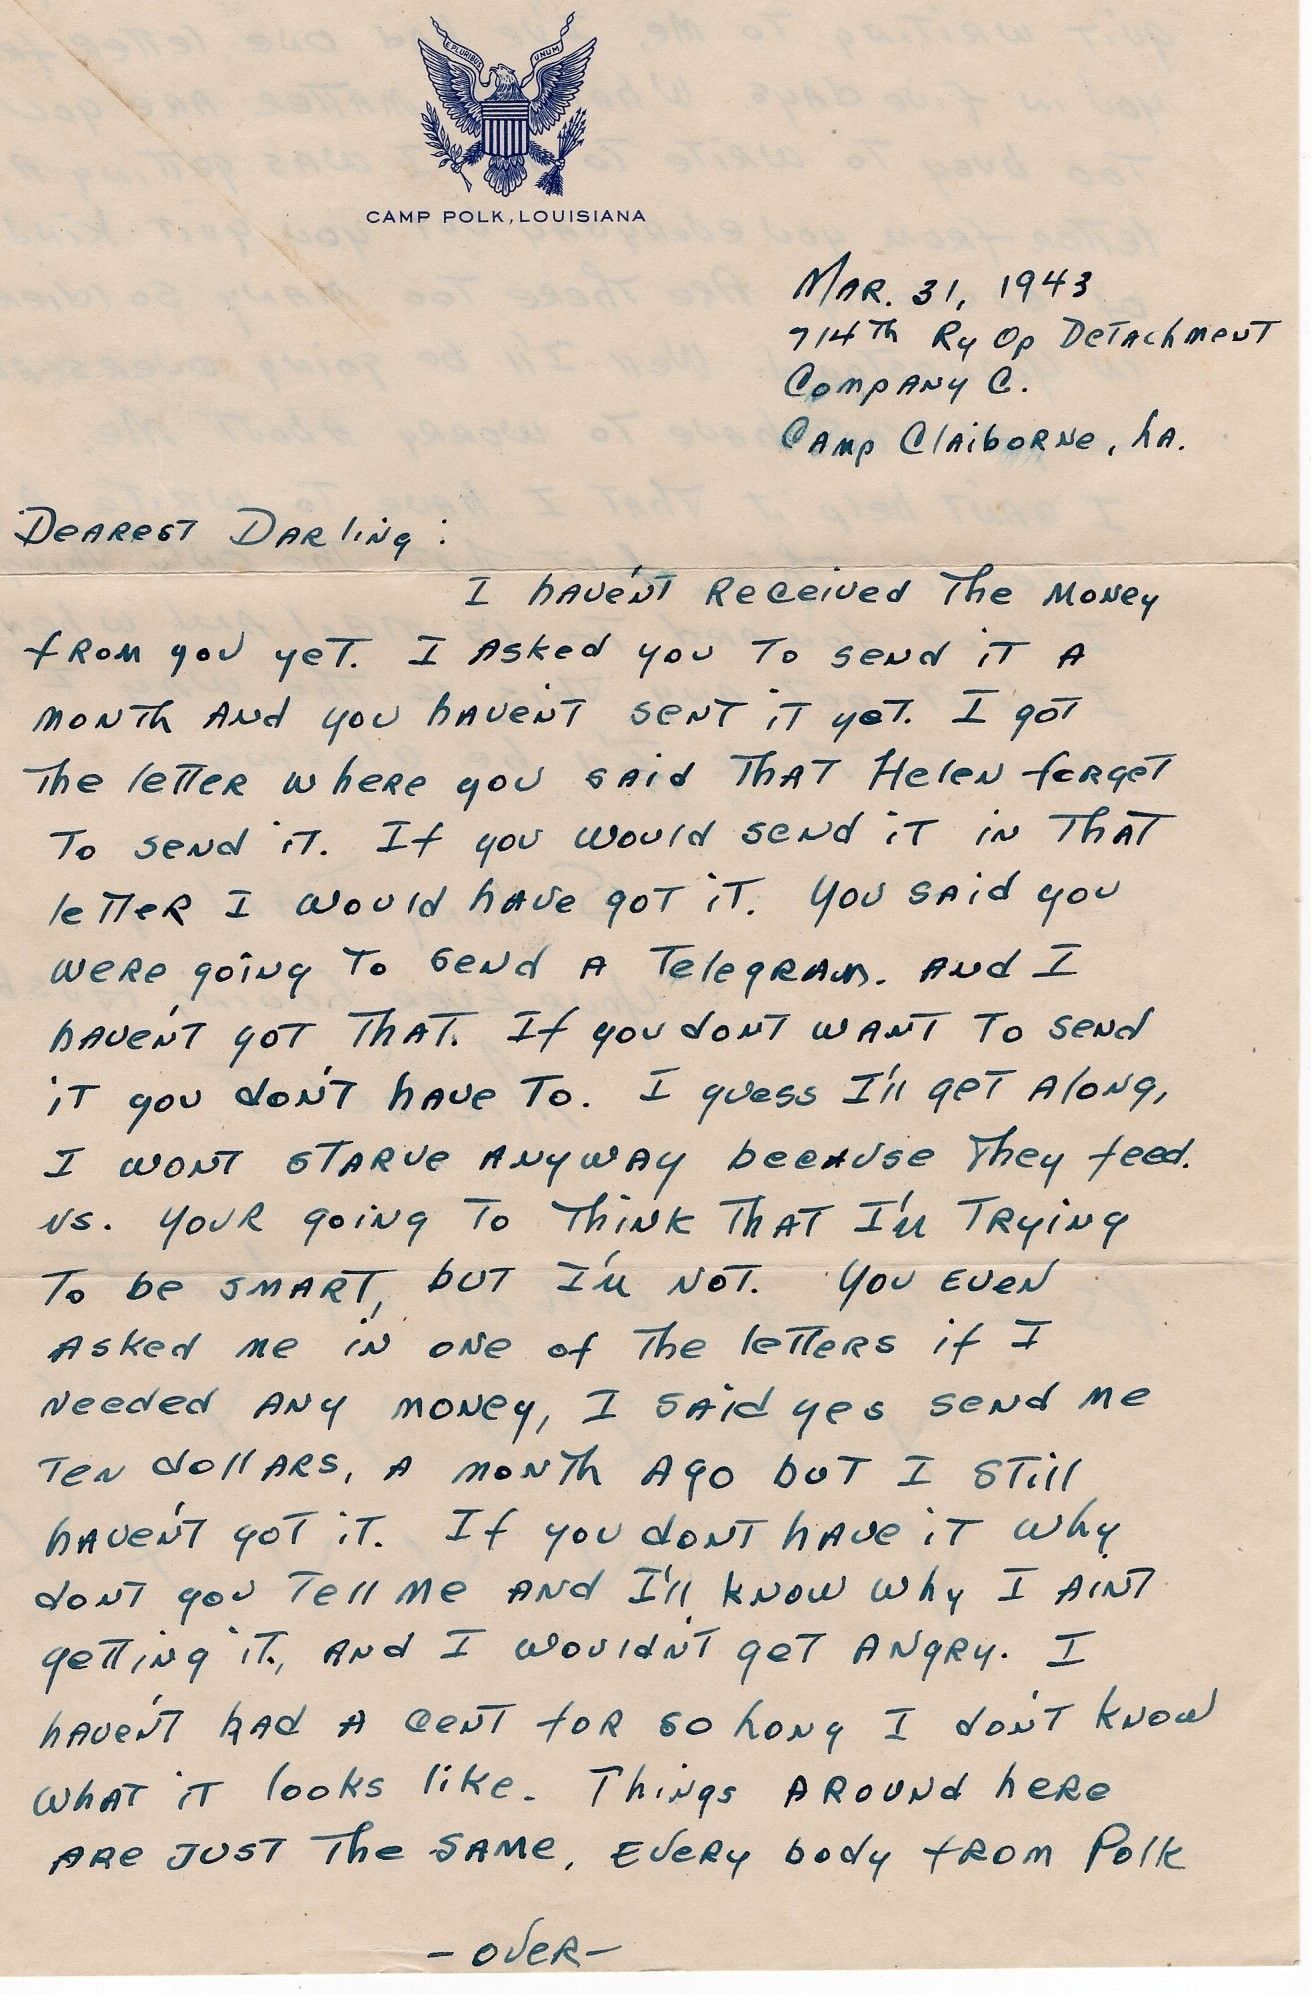 E PLURIBUS UNUM
CAMP POLK, LOUISIANA
Mar. 31, 1943
714th Ry Op Detachment
Company C.
Camp Claiborne, La.
Dearest Darling:
I have'nt received the money
from you yet. I asked you to send it a
month and you have'nt sent it yet. I got
the letter where you said that Helen forget
to send it. If you would send it in that
letter I would have got it. You said you
were going to send a telegram. and I
have'nt got that. If you dont want to send
it you do'nt have to. I guess I'll get along,
I wont starve anyway because they feed.
us. Your going to think that I'm trying
to be smart, but I'm not. You even
asked me in one of the letters if I
needed any money, I said yes send me
ten dollars, a month ago but I still
have'nt got it. If you dont have it why
dont you tell me and I'll know why I aint
getting it, and I would'nt get angry. I
have'nt had a cent for so long I do'nt know
what it looks like. Things around here
are just the same, every body from Polk
- over -